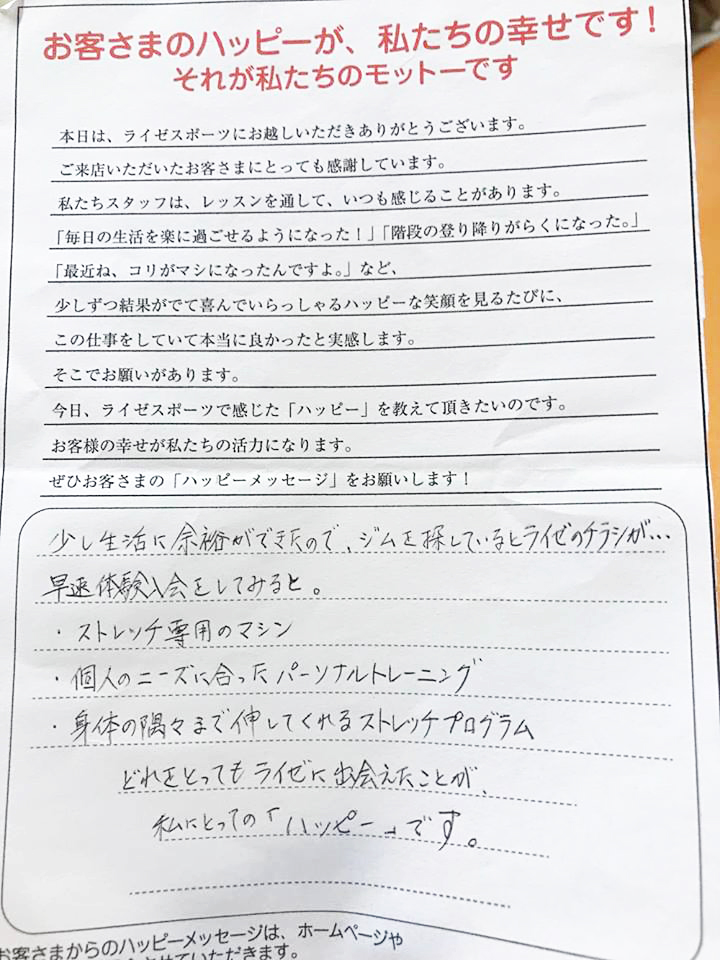 お客さまのハッピーが、私たちの幸せです!
それが私たちのモットーです
本日は、ライゼスポーツにお越しいただきありがとうございます。
ご来店いただいたお客さまにとっても感謝しています。
私たちスタッフは、レッスンを通して、いつも感じることがあります。
「毎日の生活を楽に過ごせるようになった！」「階段の登り降りがらくになった。」
「最近ね、コリがマシになったんですよ。」など、
少しずつ結果がでて喜んでいらっしゃるハッピーな笑顔を見るたびに、
この仕事をしていて本当に良かったと実感します。
そこでお願いがあります。
今日、ライゼスポーツで感じた「ハッピー」を教えて頂きたいのです。
お客様の幸せが私たちの活力になります。
ぜひお客さまの「ハッピーメッセージ」をお願いします！
少し生活に余裕ができたので、ジムを探しているとライゼのチラシが…
早速体験入会をしてみると。
・ストレッチ専用のマシン
・個人のニーズに合ったパーソナルトレーニング
・身体の隅々まで伸してくれるストレッチプログラム
どれをとってもライゼに出会えたことが、
私にとっての「ハッピー」です。
お客さまからのハッピーメッセージは、ホームページや
させていただきます。